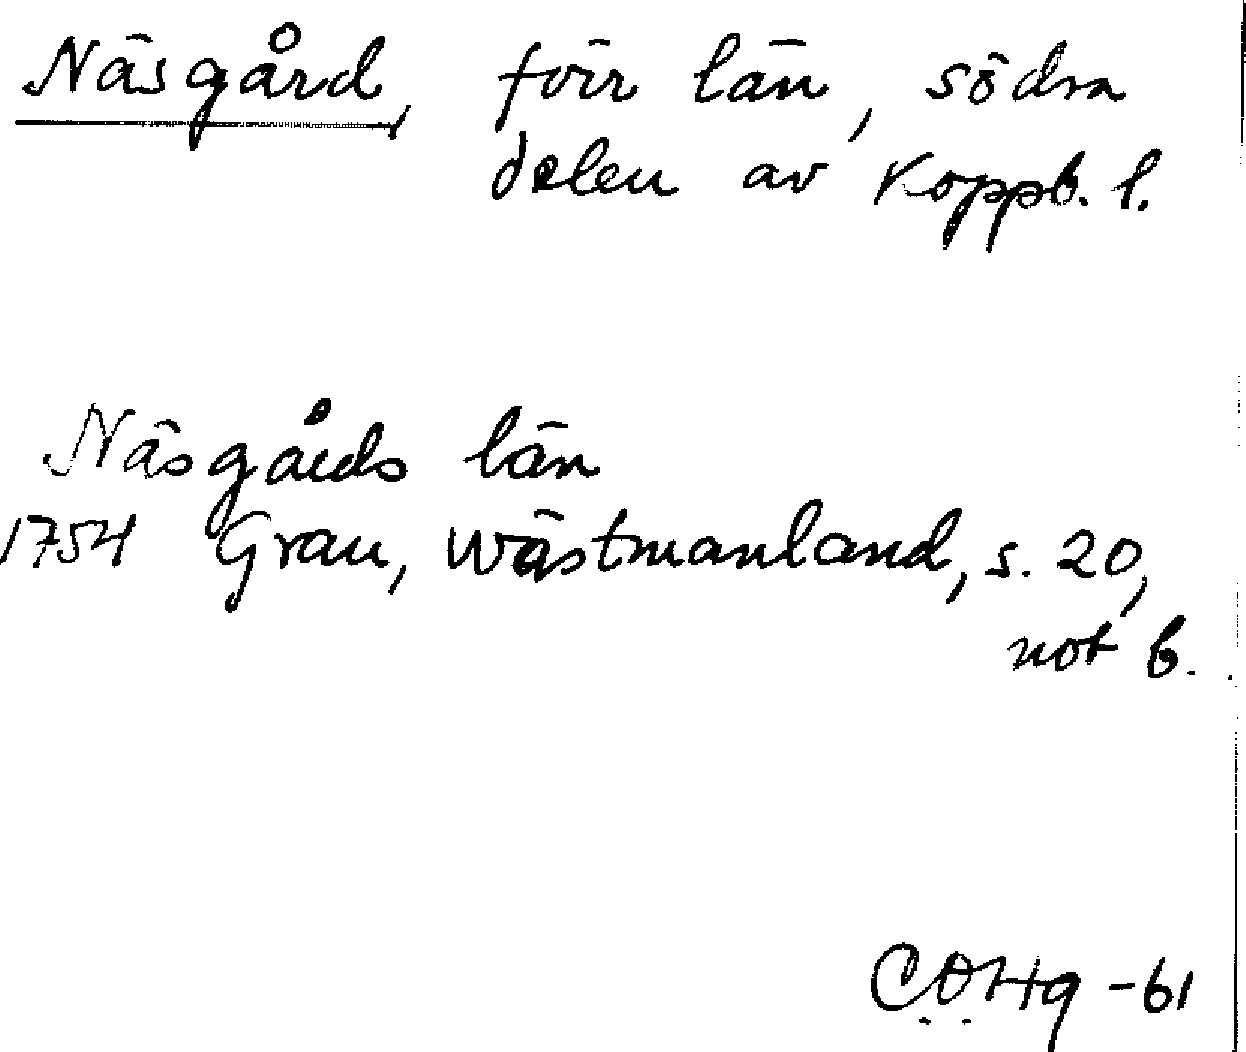 Näsgård, förr län, södra
delen av Koppb. l.
Näsgårds län
1754 Grau, Wästmanland, s. 20,
not b.
C.O.Hg -61